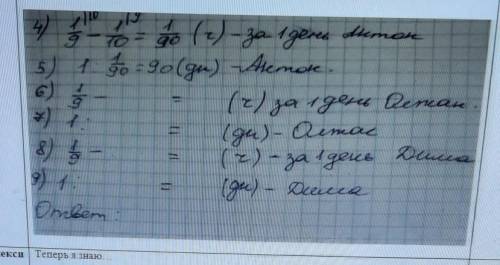 4) 1/9|¹⁰ - 1/10|⁹ = 1/90 (ч) - за 1 день Антон
5) 1 1/90 = 90 (дн) - Антон.
6) 1/9 - = (ч) за 1 день Олжан.
7) 1: = (дн) - Олжас
8) 1/9 - = (ч) - за 1 день Дима
9) 1: = (дн) - Дима
Ответ:
екси Теперь я знаю.